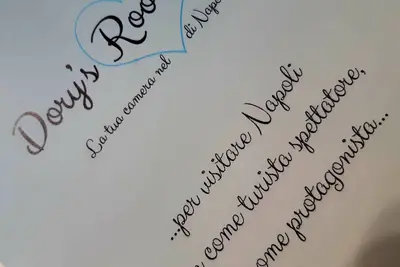 Dory's Roo
La tua camera nel
di Napo
...per visitare Napoli
come turista spettatore,
ome protagonista...